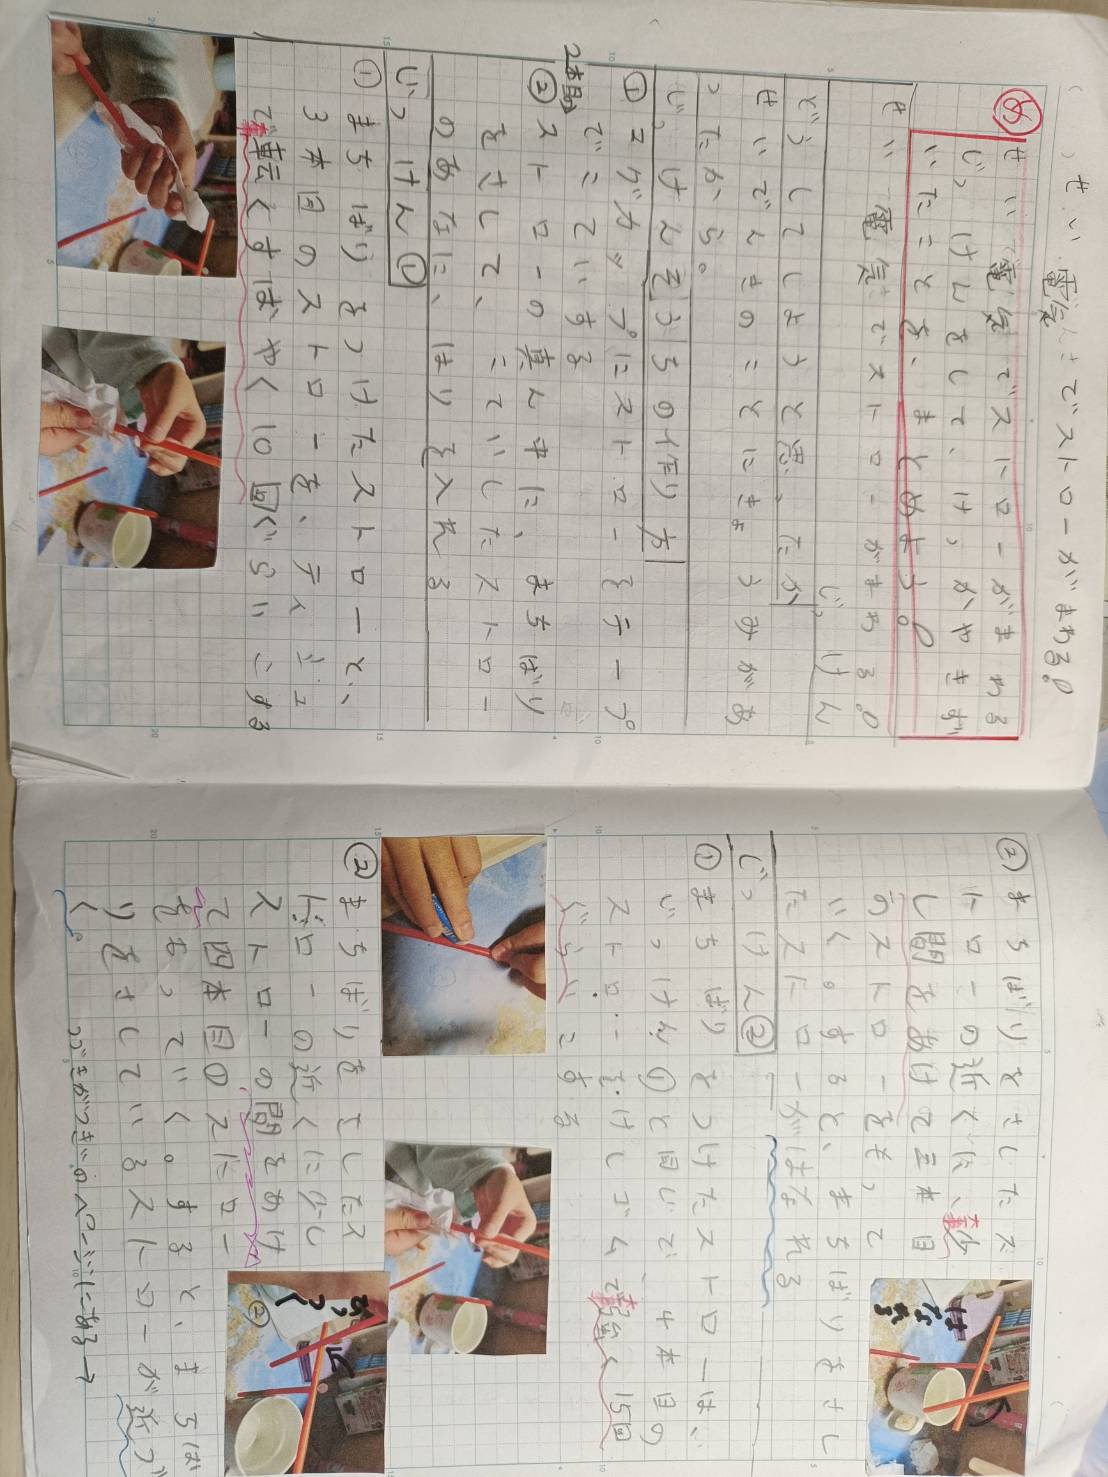 せい電気でストローがまわる!
め
せい電気でストローがまわる
じっけんをして、けっかやきづ
いたことを、まとめよう。
せい電気でストローがまわる!
じっけん
どうしてしようと思ったか
せいでんきのことにきょうみがあ
ったから。
じっけんそうちの作り方
① マグカップにストローをテープ
でこていする
2本目
② ストローの真ん中に、まちばり
をさして、こていしたストロー
のあなに、はりを入れる
じっけん①
① まちばりをつけたストローと、
3本目のストローを、ティシュ
で軽くすばやく10回ぐらいこする
② まちばりをさしたス
トローの近くに、少
し間をあけて三本目
のストローをもって
いく。すると、まちばりをさし
たストローがはなれる
はなれる
じっけん②
① まちばりをつけたストローは、
じっけん①と同じで、4本目の
ストローを、けしゴムで軽く15回
ぐらいこする
② まちばりをさしたス
トローの近くに少し
ストローの間をあけ
て四本目のストロー
をもっていく。すると、まちば
りをさしているストローが近づ
く。
②
つづきがつぎのページにある→